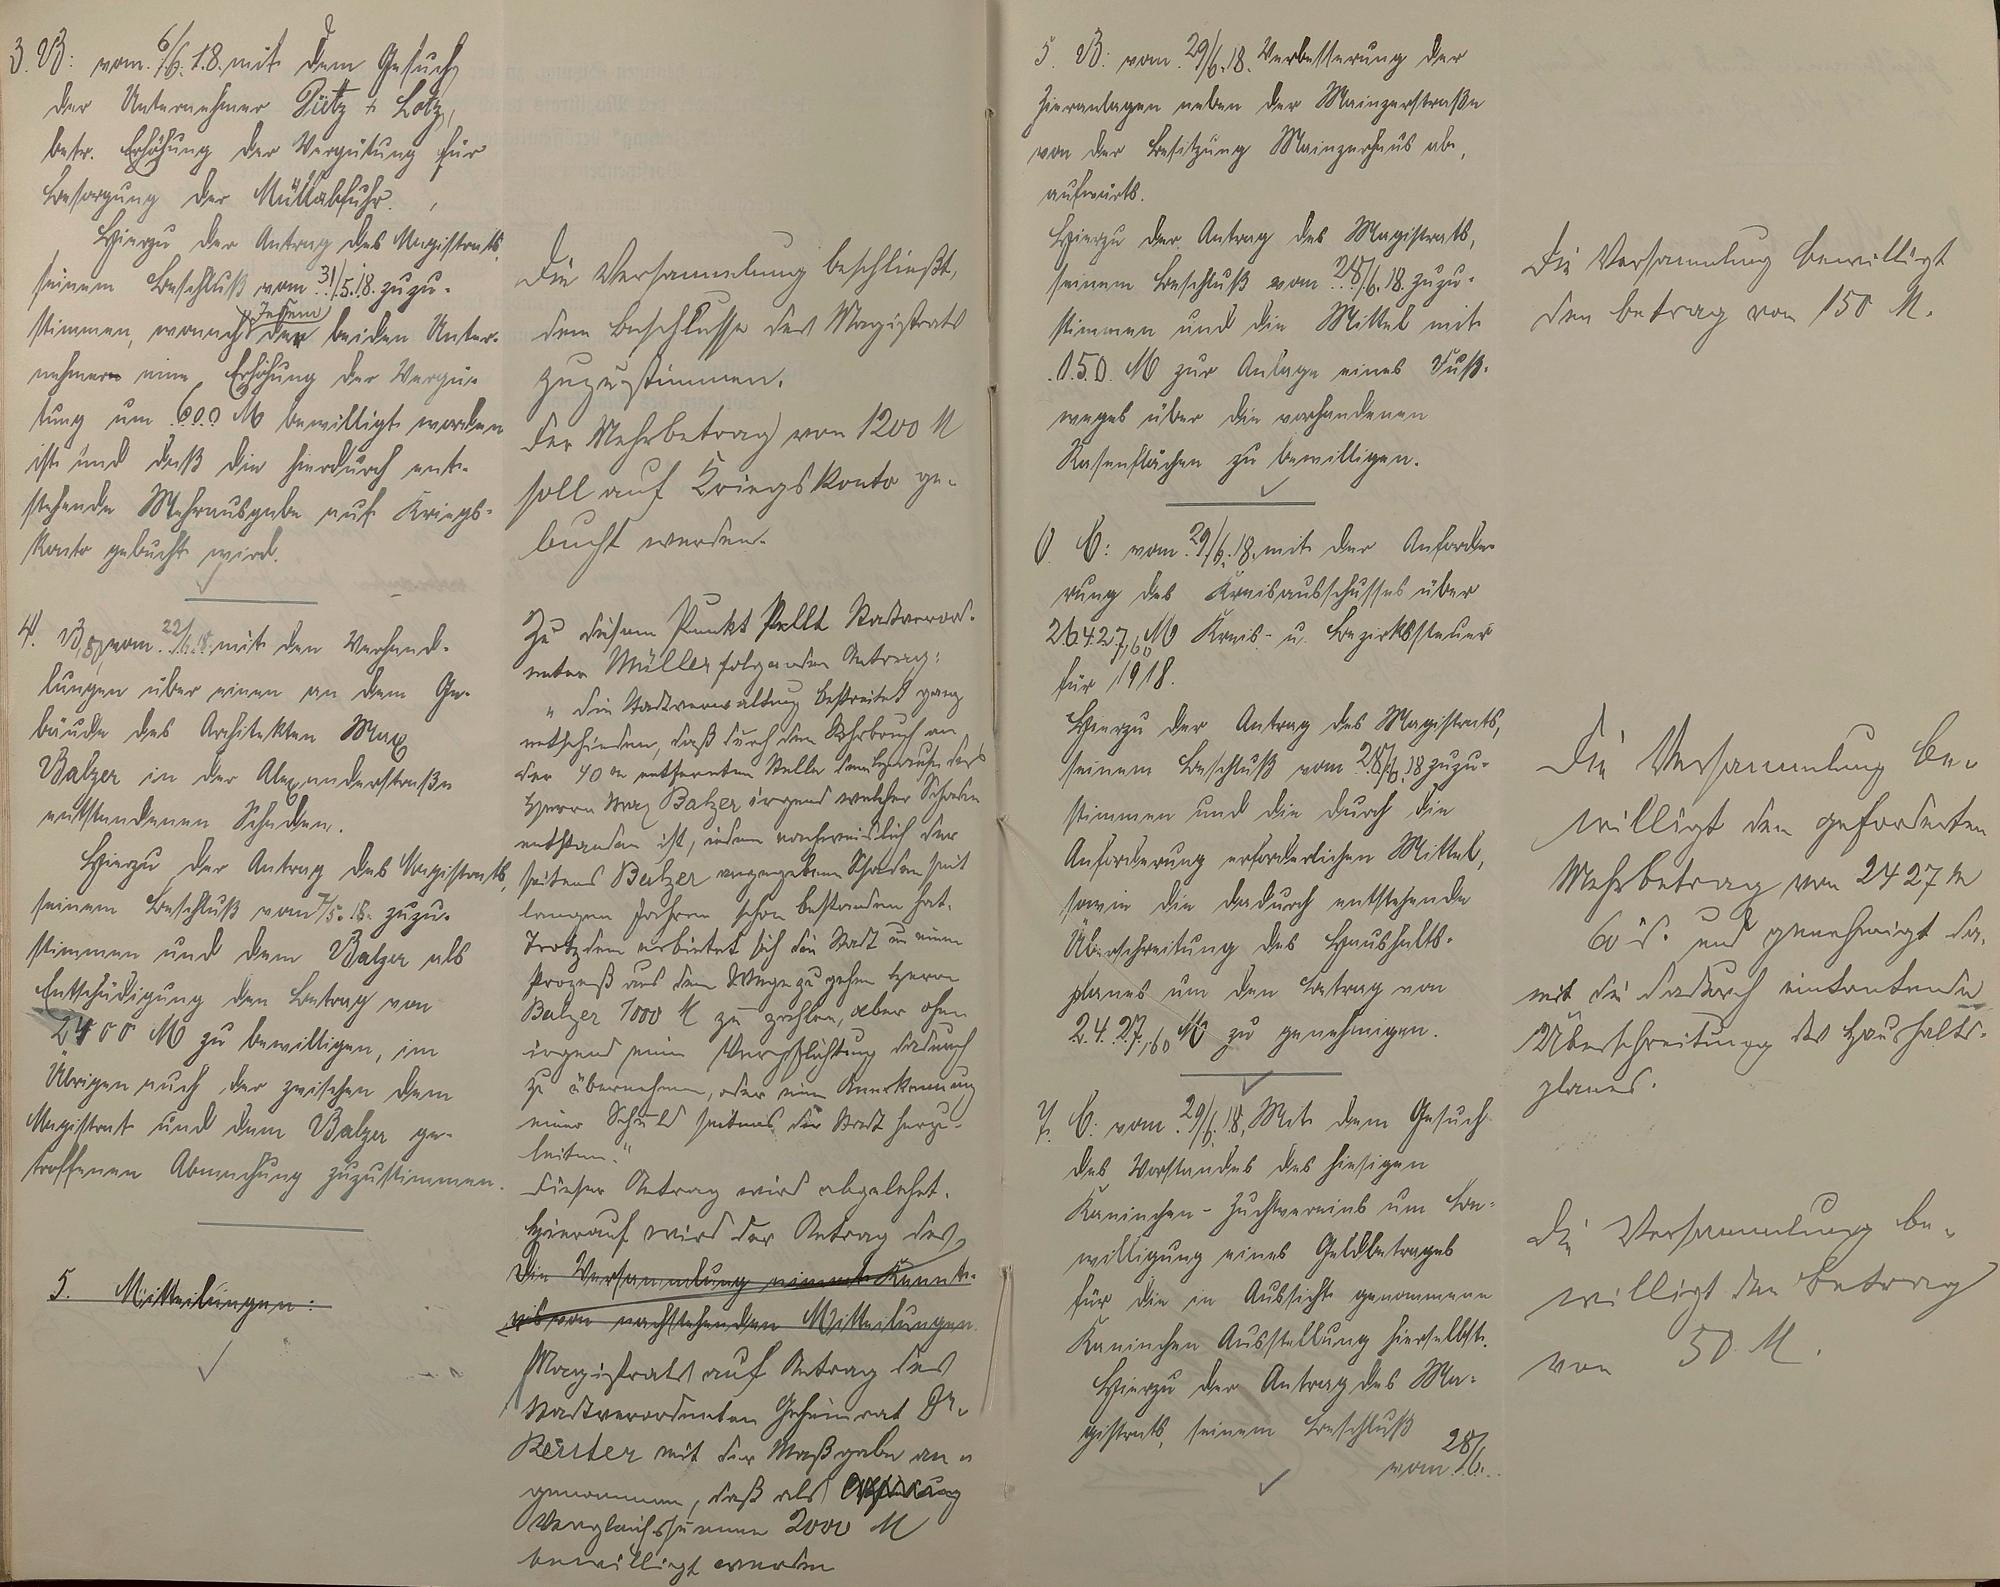 3. B: vom 6/6.18. mit dem Gesuch
der Unternehmer Pütz + Lotz,
betr. Erhöhung der Vergütung für
Besorgung der Müllabfuhr.
Hierzu der Antrag des Magistrats,
seinem Beschluß vom 31/5.18. zuzu-
stimmen, wonach Jedem der beiden Unter-
nehmer eine Erhöhung der Vergü-
tung um 600 M bewilligt worden
ist und daß die hierdurch ent-
stehende Mehrausgabe auf Kriegs-
konto gebucht wird.
Die Versammlung beschließt,
dem Beschlusse des Magistrats
zuzustimmen.
Der Mehrbetrag von 1200 M
soll auf Kriegskonto ge-
bucht werden.
4. vom 22/6.18. mit den Verhand-
lungen über einen an dem Ge-
bäude des Architekten Max
Balzer in der Alexanderstraße
entstandenen Schaden.
Hierzu der Antrag des Magistrats,
seinem Beschluß vom 7/5.18. zuzu-
stimmen und dem Balzer als
Entschädigung den Betrag von
2400 M zu bewilligen, im
Übrigen auch der zwischen dem
Magistrat und dem Balzer ge-
troffenen Abmachung zuzustimmen.
5. Mitteilungen:
Zu diesem Punkt stellt Stadtverord-
neter Müller folgenden Antrag:
"Die Stadtverwaltung bestreitet ganz
entschieden, daß durch den Rohrbruch an
der 40 m entfernten Stelle dem Hause des
Herrn Max Balzer irgend welcher Schaden
entstanden ist, indem nachweislich der
seitens Balzer angegebene Schaden seit
langen Jahren schon bestanden hat.
Trotzdem erbietet sich die Stadt um einem
Prozeß aus dem Wege zu gehen Herrn
Balzer 1000 M zu zahlen, aber ohne
irgend eine Verpflichtung dadurch
zu übernehmen, oder eine Anerkennung
einer Schuld seitens der Stadt herzu-
leiten."
Dieser Antrag wird abgelehnt.
Hierauf wird der Antrag des
Die Versammlung nimmt Kennt-
nis von nachstehenden Mitteilungen.
Magistrats auf Antrag des
Stadtverordneten Geheimrat Dr.
mit der Maßgabe an-
genommen, daß als
Vergleichssumme 2000 M
bewilligt werden
5. B: vom 29/6.18. Verbesserung der
Zieranlagen neben der Mainzerstraße
von der Besitzung Mainzerhaus ab,
aufwärts.
Hierzu der Antrag des Magistrats,
seinem Beschluß vom 28/6.18. zuzu-
stimmen und die Mittel mit
150 M zur Anlage eines Fuß-
weges über die vorhandenen
Rasenflächen zu bewilligen.
Die Versammlung bewilligt
den Betrag von 150 M.
6. C: vom 29/6.18. mit der Anforde-
rung des Kreisausschusses über
26427,60 M Kreis- u. Bezirkssteuer
für 1918.
Hierzu der Antrag des Magistrats,
seinem Beschluß vom 28/6.18 zuzu-
stimmen und die durch die
Anforderung erforderlichen Mittel,
sowie die dadurch entstehende
Überschreitung des Haushalts-
planes um den Betrag von
2427,60 M zu genehmigen.
Die Versammlung be-
willigt den geforderten
Mehrbetrag von 2427 M
60 d. und genehmigt da-
mit die dadurch eintretende
Überschreitung des Haushalts-
planes.
7. C: vom 29/6.18. Mit dem Gesuch
des Vorstandes des hiesigen
Kaninchen-Zuchtvereins um Be-
willigung eines Geldbetrages
für die in Aussicht genommene
Kaninchen Ausstellung hierselbst.
Hierzu der Antrag des Ma-
gistrats, seinem Beschluß
vom 28/6.
Die Versammlung be-
willigt den Betrag
von 50 M.